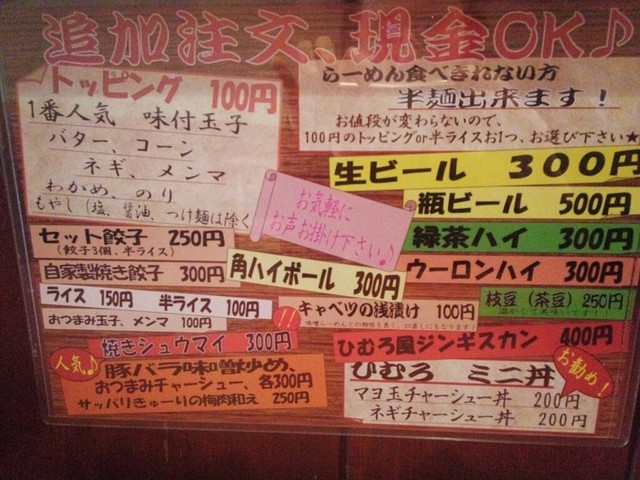 追加注文、現金OK♪
トッピング 100円
1番人気 味付玉子
バター、コーン
ネギ、メンマ
わかめ、のり
もやし(塩、醤油、つけ麺は除く
らーめん食べきれない方
半麺出来ます!
お値段が変わらないので、
100円のトッピングor半ライスお1つ、お選び下さい★
生ビール 300円
瓶ビール 500円
お気軽に
お声お掛け下さい♪
セット餃子 250円
(餃子3個、半ライス)
緑茶ハイ 300円
自家製焼き餃子 300円
角ハイボール 300円
ウーロンハイ 300円
ライス 150円 半ライス 100円
おつまみ玉子、メンマ 100円
キャベツの浅漬け 100円
味噌らーめんとの相性も良く、口直しにもなります!
枝豆(茶豆)250円
温かくて美味いです!!
!!
焼きシュウマイ 300円
ひむろ風ジンギスカン 400円
人気♪
豚バラ味噌炒め、
おつまみチャーシュー、各300円
サッパリきゅーりの梅肉和え 250円
お勧め!
ひむろ ミニ丼
マヨ玉チャーシュー丼 200円
ネギチャーシュー丼 200円